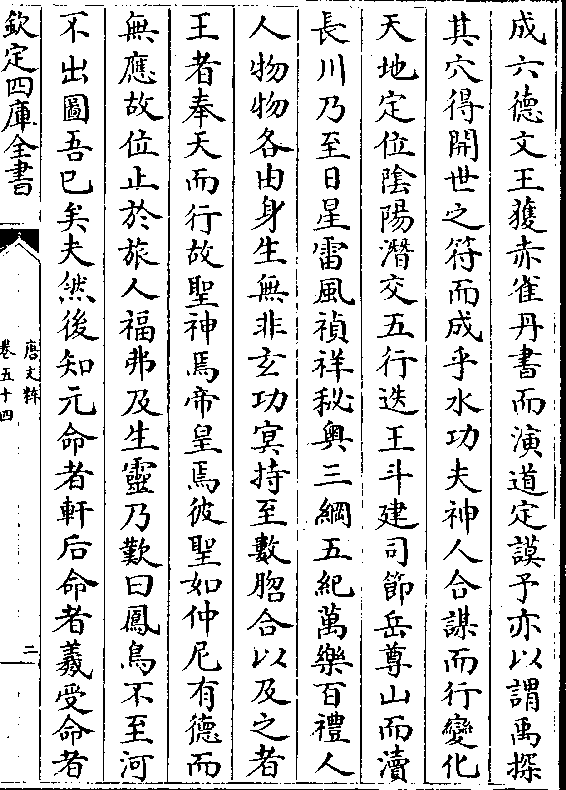 成六德文王獲赤雀丹書而演道定謨予亦以謂禹探
其穴得開世之符而成乎水功夫神人合謀而行變化
天地定位陰陽潛交五行迭王斗建司節岳尊山而瀆
長川乃至日星雷風禎祥秘奥三綱五紀萬樂百禮人
人物物各由身生無非玄功冥持至數脗合以及之者
王者奉天而行故聖神焉帝皇焉彼聖如仲尼有德而
無應故位止於旅人福弗及生靈乃歎曰鳳鳥不至河
不出圖吾已矣夫然後知元命者軒后命者羲受命者
欽定四庫全書
唐文粹
卷五十四
二